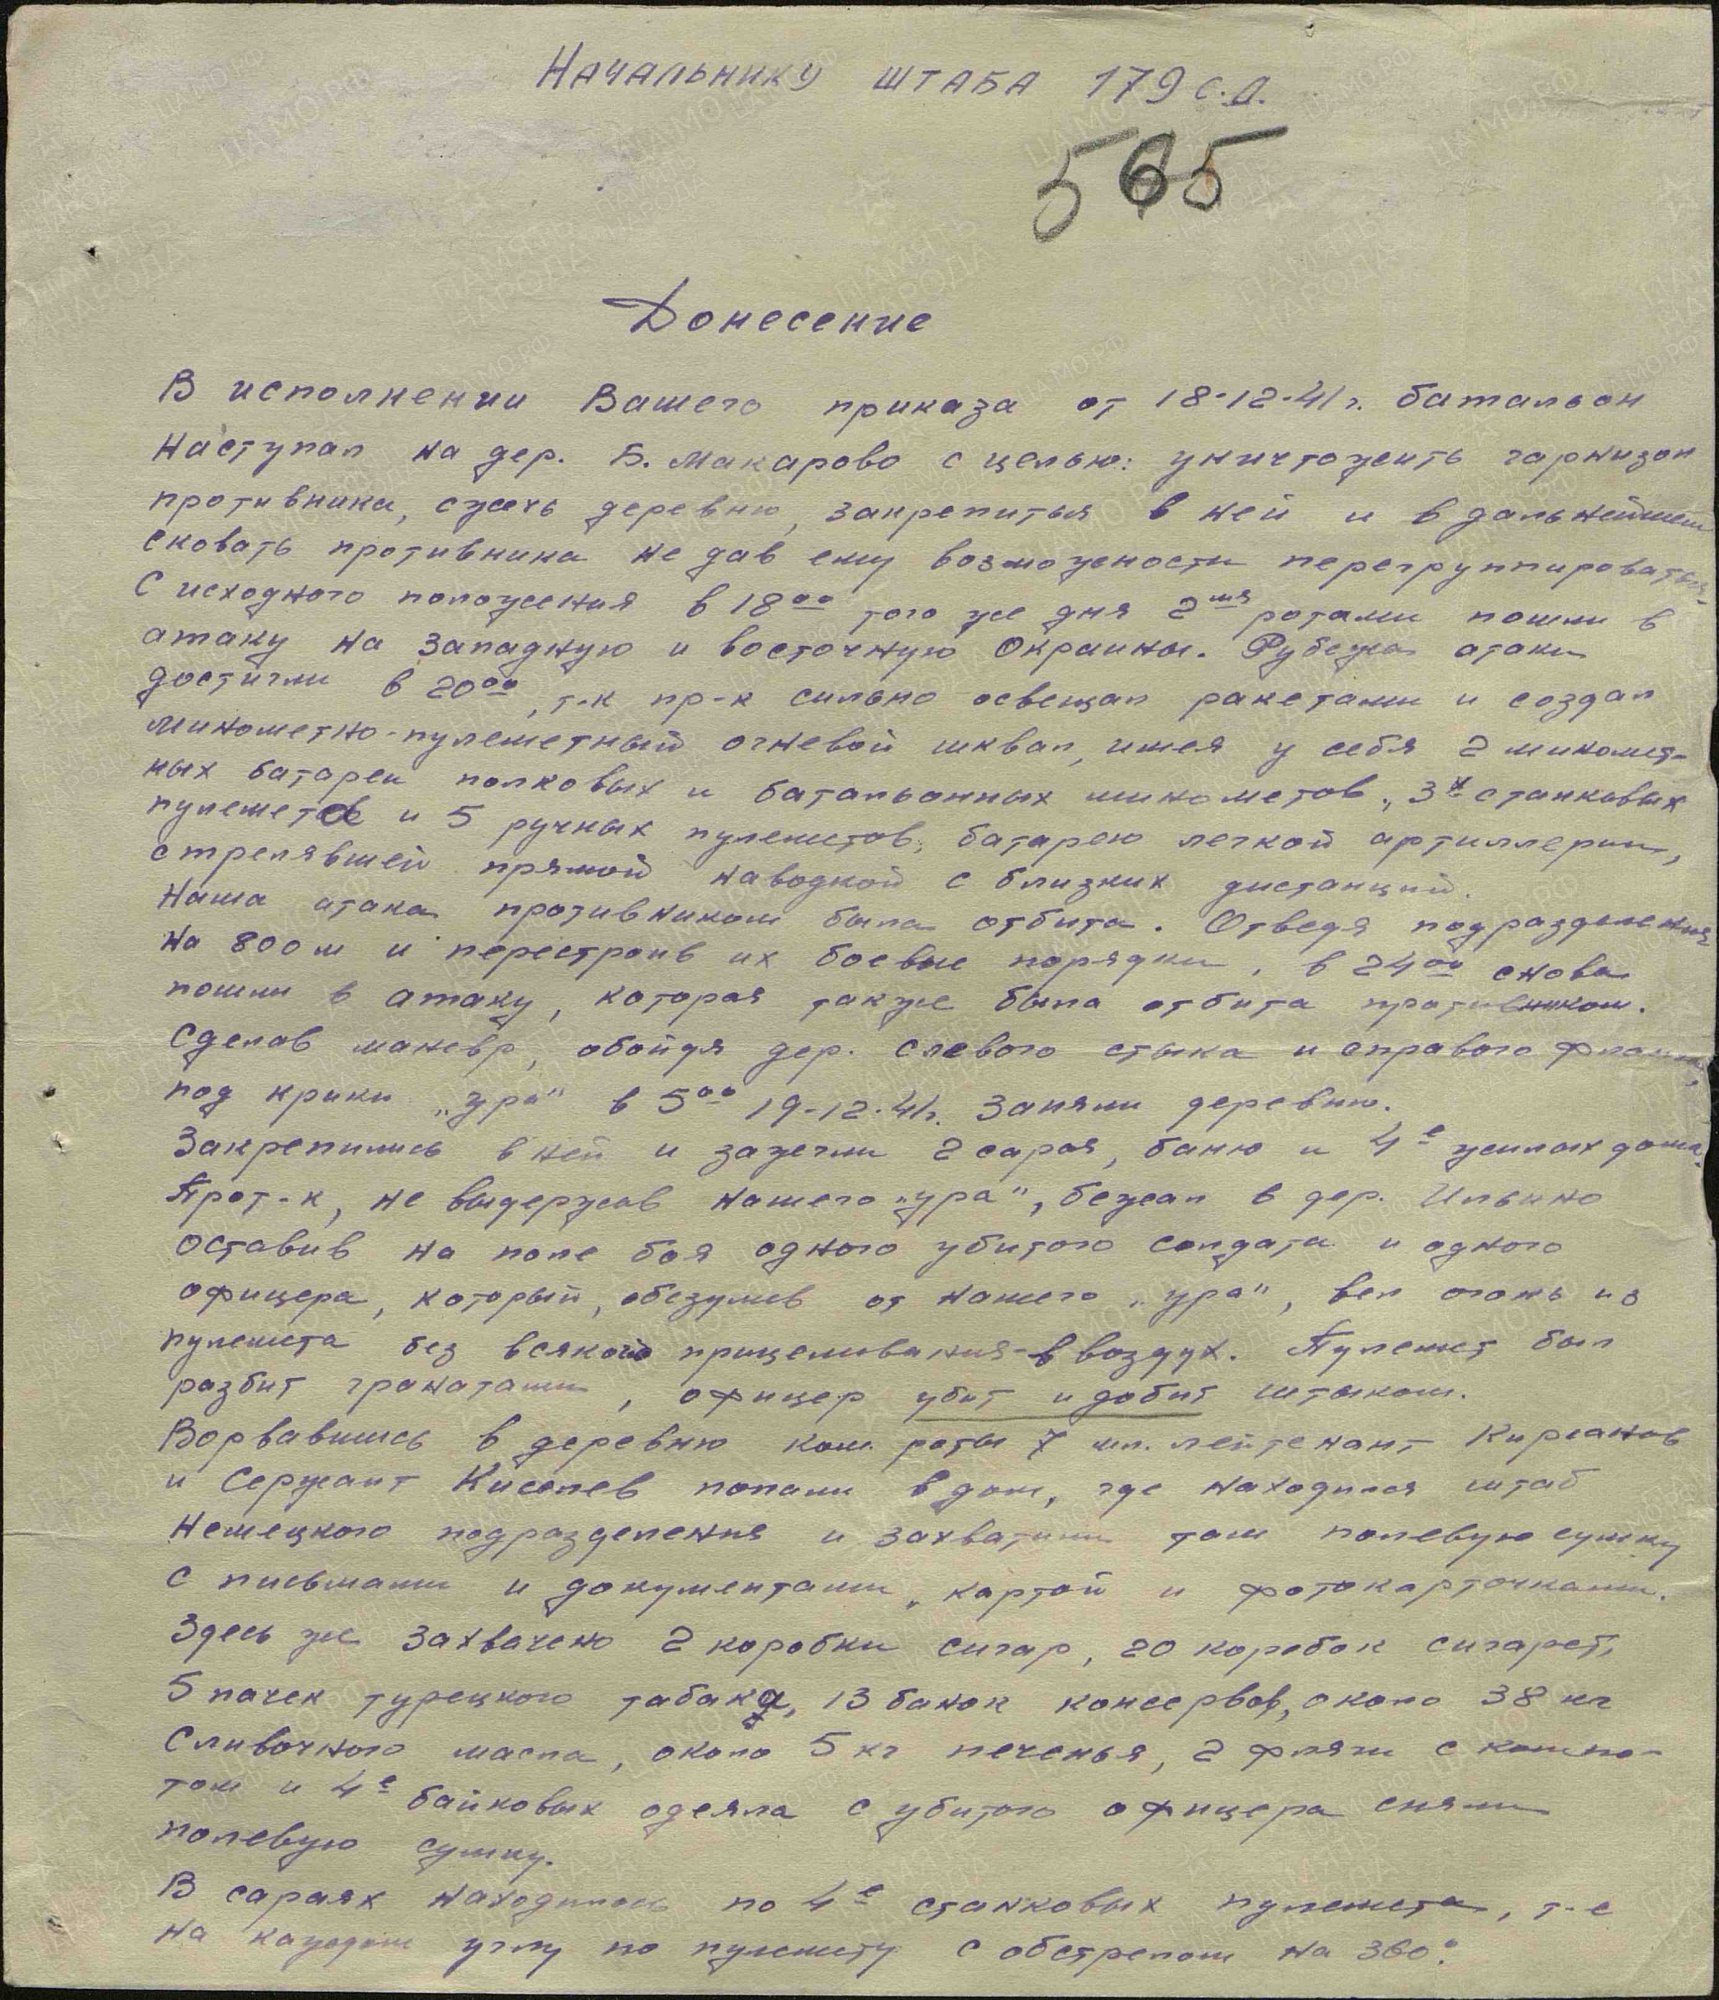 Начальнику штаба 179 с.д.
565
Донесение
В исполнении Вашего приказа от 18-12-41г. батальон
наступал на дер. Б. Макарово с целью: уничтожить гарнизон
противника, сжечь деревню, закрепиться в ней и в дальнейшем
сковать противника не дав ему возможности перегруппироваться.
С исходного положения в 18⁰⁰ того же дня 2мя ротами пошли в
атаку на западную и восточную окраины. Рубежа атаки
достигли в 20⁰⁰, т-к пр-к сильно освещал ракетами и создал
минометно-пулеметный огневой шквал, имея у себя 2 миномет-
ных батареи полковых и батальонных минометов, 3х станковых
пулеметов и 5 ручных пулеметов, батарею легкой артиллерии,
стрелявшей прямой наводкой с близких дистанций.
Наша атака противником была отбита. Отведя подразделения
на 800м и перестроив их боевые порядки, в 24⁰⁰ снова
пошли в атаку, которая также была отбита противником.
Сделав маневр, обойдя дер. с левого стыка и справого фланга,
под крики „ура" в 5⁰⁰ 19-12-41г. заняли деревню.
Закрепились в ней и зажгли 2 сарая, баню и 4е жилых дома.
Прот-к, не выдержав нашего „ура", бежал в дер. Ильино
оставив на поле боя одного убитого солдата и одного
офицера, который, обезумев от нашего „ура", вел огонь из
пулемета без всякого прицеливания-в воздух. Пулемет был
разбит гранатами, офицер убит и добит штыком.
Ворвавшись в деревню ком. роты 7 мл. лейтенант Кирсанов
и Сержант Киселев попали в дом, где находился штаб
Немецкого подразделения и захватили там полевую сумку
с письмами и документами, картой и фотокарточками.
Здесь же захвачено 2 коробки сигар, 20 коробок сигарет,
5 пачек турецкого табака, 13 банок консервов, около 38 кг
Сливочного масла, около 5 кг печенья, 2 фляги с компо-
том и 4е байковых одеяла с убитого офицера сняли
полевую сумку.
В сараях находилось по 4е станковых пулемета, т-е
на каждом углу по пулемету с обстрелом на 360°.